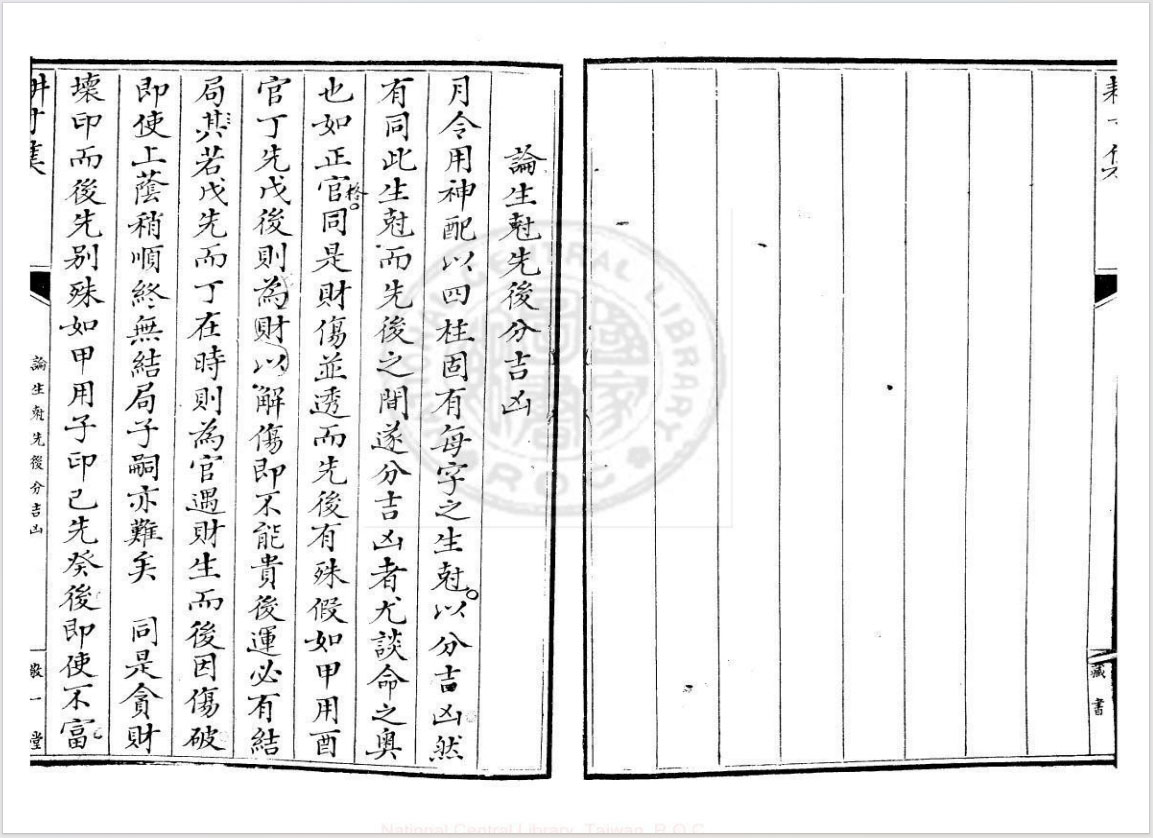 論生尅先後分吉凶
月令用神配以四柱固有每字之生尅。以分吉凶然
有同此生尅而先後之間遂分吉凶者尤談命之奧
也如正官格。同是財傷並透而先後有殊假如甲用酉
官丁先戊後則為財以解傷即不能貴後運必有結
局其若戊先而丁在時則為官遇財生而後因傷破
即使上蔭稍順終無結局子嗣亦難矣　同是貪財
壞印而後先別殊如甲用子印己先癸後即使不富
論生尅先後分吉凶
敬一堂
藏書
NATIONAL CENTRAL LIBRARY
R.O.C
國家圖書館
National Central Library, Taiwan, R.O.C